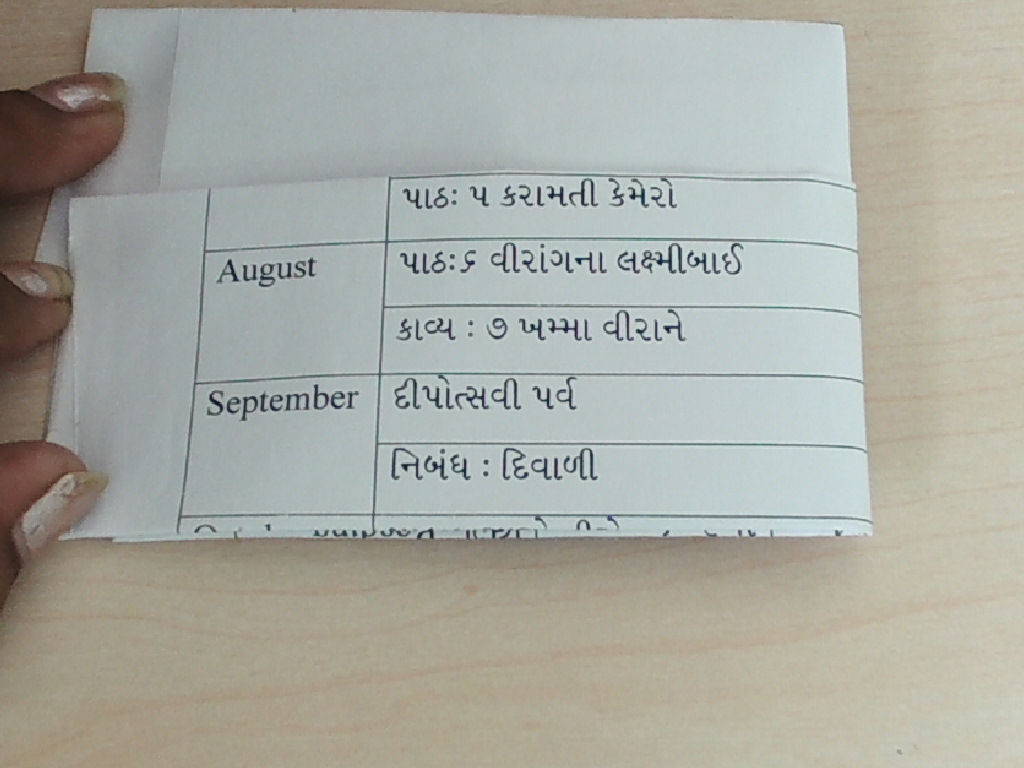 પાઠઃ ૫ કરામતી કેમેરો
August પાઠઃ૬ વીરાંગના લક્ષ્મીબાઈ
કાવ્ય : ૭ ખમ્મા વીરાને
September દીપોત્સવી પર્વ
નિબંધ : દિવાળી